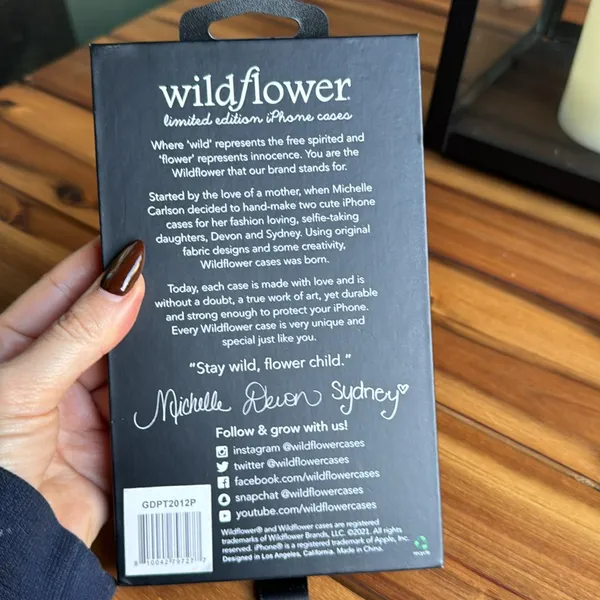 wildflower
limited edition iPhone cases
Where 'wild' represents the free spirited and
'flower' represents innocence. You are the
Wildflower that our brand stands for.
Started by the love of a mother, when Michelle
Carlson decided to hand-make two cute iPhone
cases for her fashion loving, selfie-taking
daughters, Devon and Sydney. Using original
fabric designs and some creativity,
Wildflower cases was born.
Today, each case is made with love and is
without a doubt, a true work of art, yet durable
and strong enough to protect your iPhone.
Every Wildflower case is very unique and
special just like you.
"Stay wild, flower child."
Michelle Devon Sydney
Follow & grow with us!
instagram @wildflowercases
twitter @wildflowercases
facebook.com/wildflowercases
snapchat @wildflowercases
youtube.com/wildflowercases
GDPT2012P
8 10042 79727 7
Wildflower® and Wildflower cases are registered
trademarks of Wildflower Brands, LLC. ©2021. All rights
reserved. iPhone® is a registered trademark of Apple, Inc.
Designed in Los Angeles, California. Made in China.
recycle